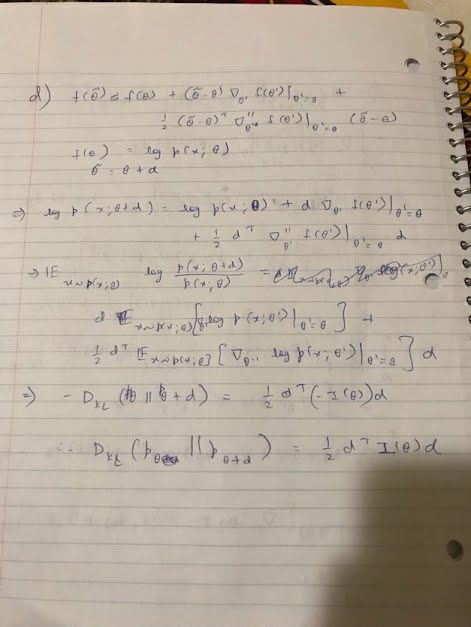 d) f(θ̃) ≈ f(θ) + (θ̃-θ) ∇θ' f(θ')|θ'=θ +
½ (θ̃-θ)ᵀ ∇''θ' f(θ')|θ'=θ (θ̃-θ)
f(θ) = log p(x;θ)
θ̃ = θ + d
⇒ log p(x;θ+d) = log p(x;θ) + d ∇θ' f(θ')|θ'=θ
+ ½ dᵀ ∇''θ' f(θ')|θ'=θ d
⇒ 𝔼x~p(x;θ) log p(x;θ+d)/p(x;θ) =
d 𝔼x~p(x;θ)[∇θ' log p(x;θ')|θ'=θ] +
½ dᵀ 𝔼x~p(x;θ)[∇θ'' log p(x;θ')|θ'=θ] d
⇒ - DKL (pθ || pθ+d) = ½ dᵀ(-I(θ))d
∴ DKL (pθ || pθ+d) = ½ dᵀ I(θ) d